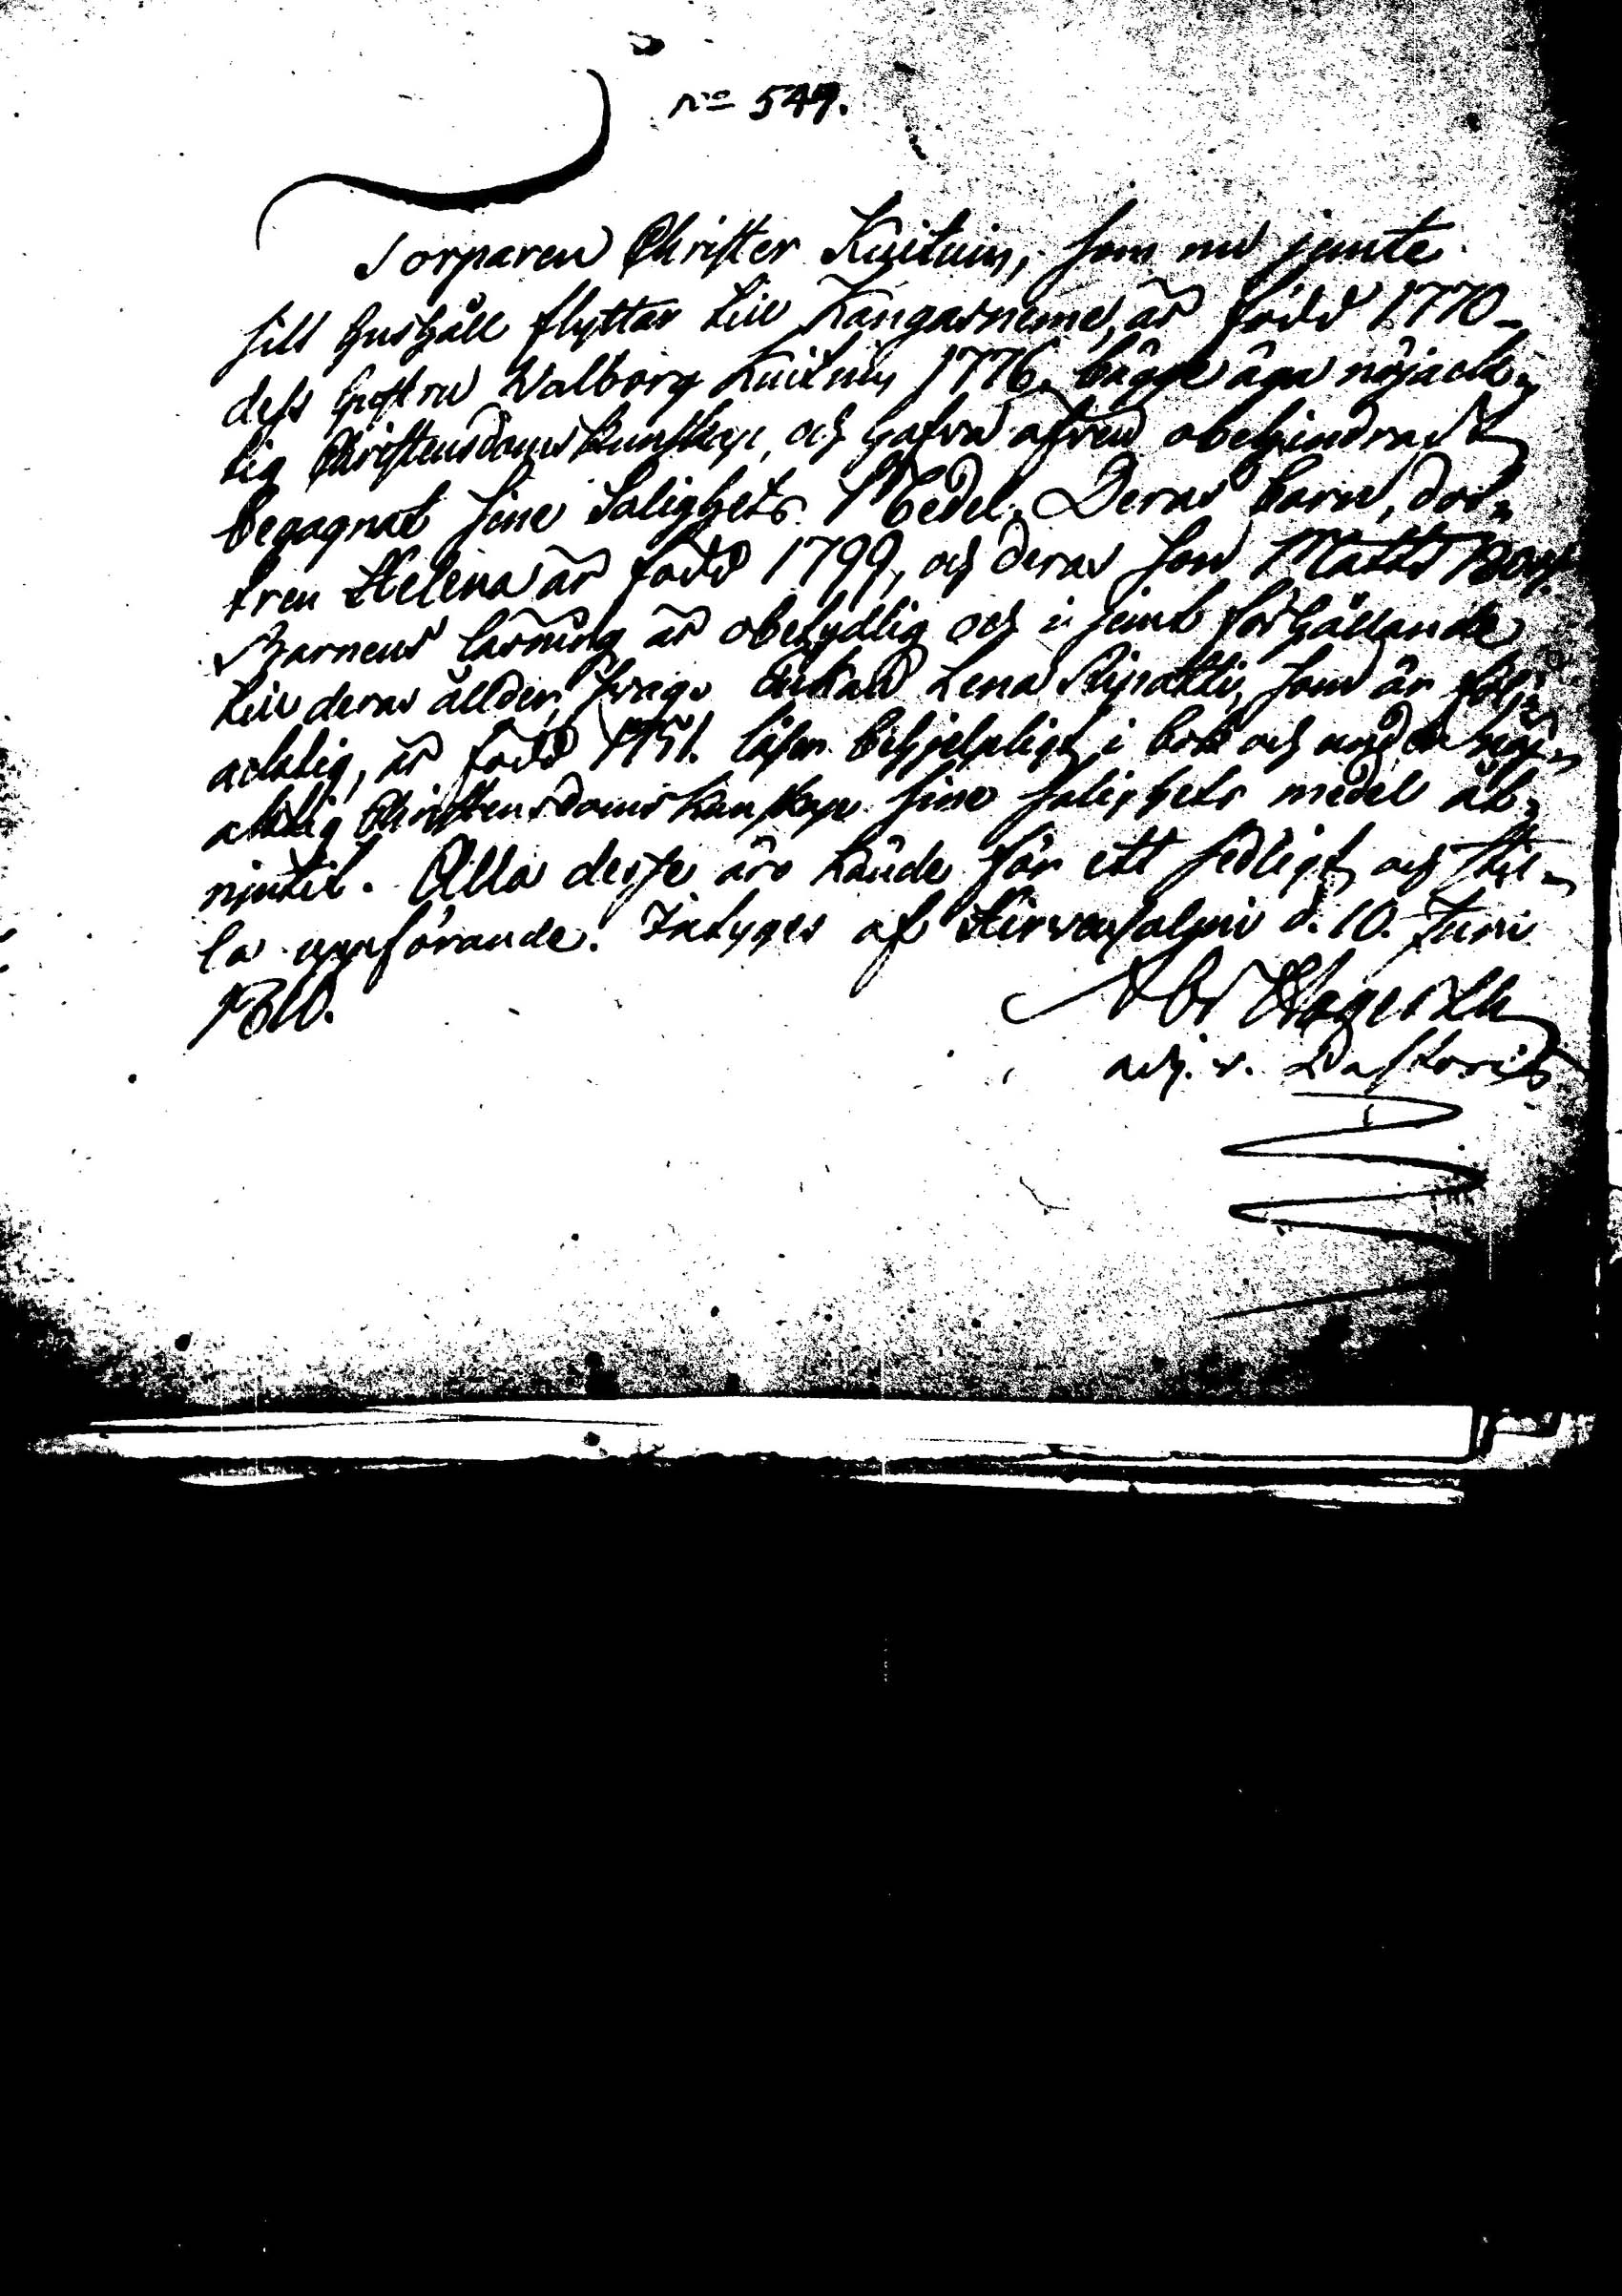 no 549.
Torparen Christer Kuituin, som nu jemte
sitt hushåll flyttar till Kangasneme, är född 1770 –
dess hustru Walborg Kuituin 1776. bägge äga nöjack=
tig Christensdoms kunskap, och hafva äfven obehindradt
begagnat sine Salighets Medel. Deras barn, dot=
tren Helena är född 1799, och deras son Matts
Barnens läsning är obetydlig och i jemt förhållande
till deras ållder, svag. Enkan Lena Ripatti, som är följ=
acktig, är född 1751. läser behjelpligt i bok och med nöj=
aktig Christensdoms kunskap sine salighets medel åt=
njutit. Alla desse äro kände för ett sedligt och stil=
la uppförande. Intyges af Hirvensalmi d. 10. Juni
1810.
Abr
adj. v. Pastoris